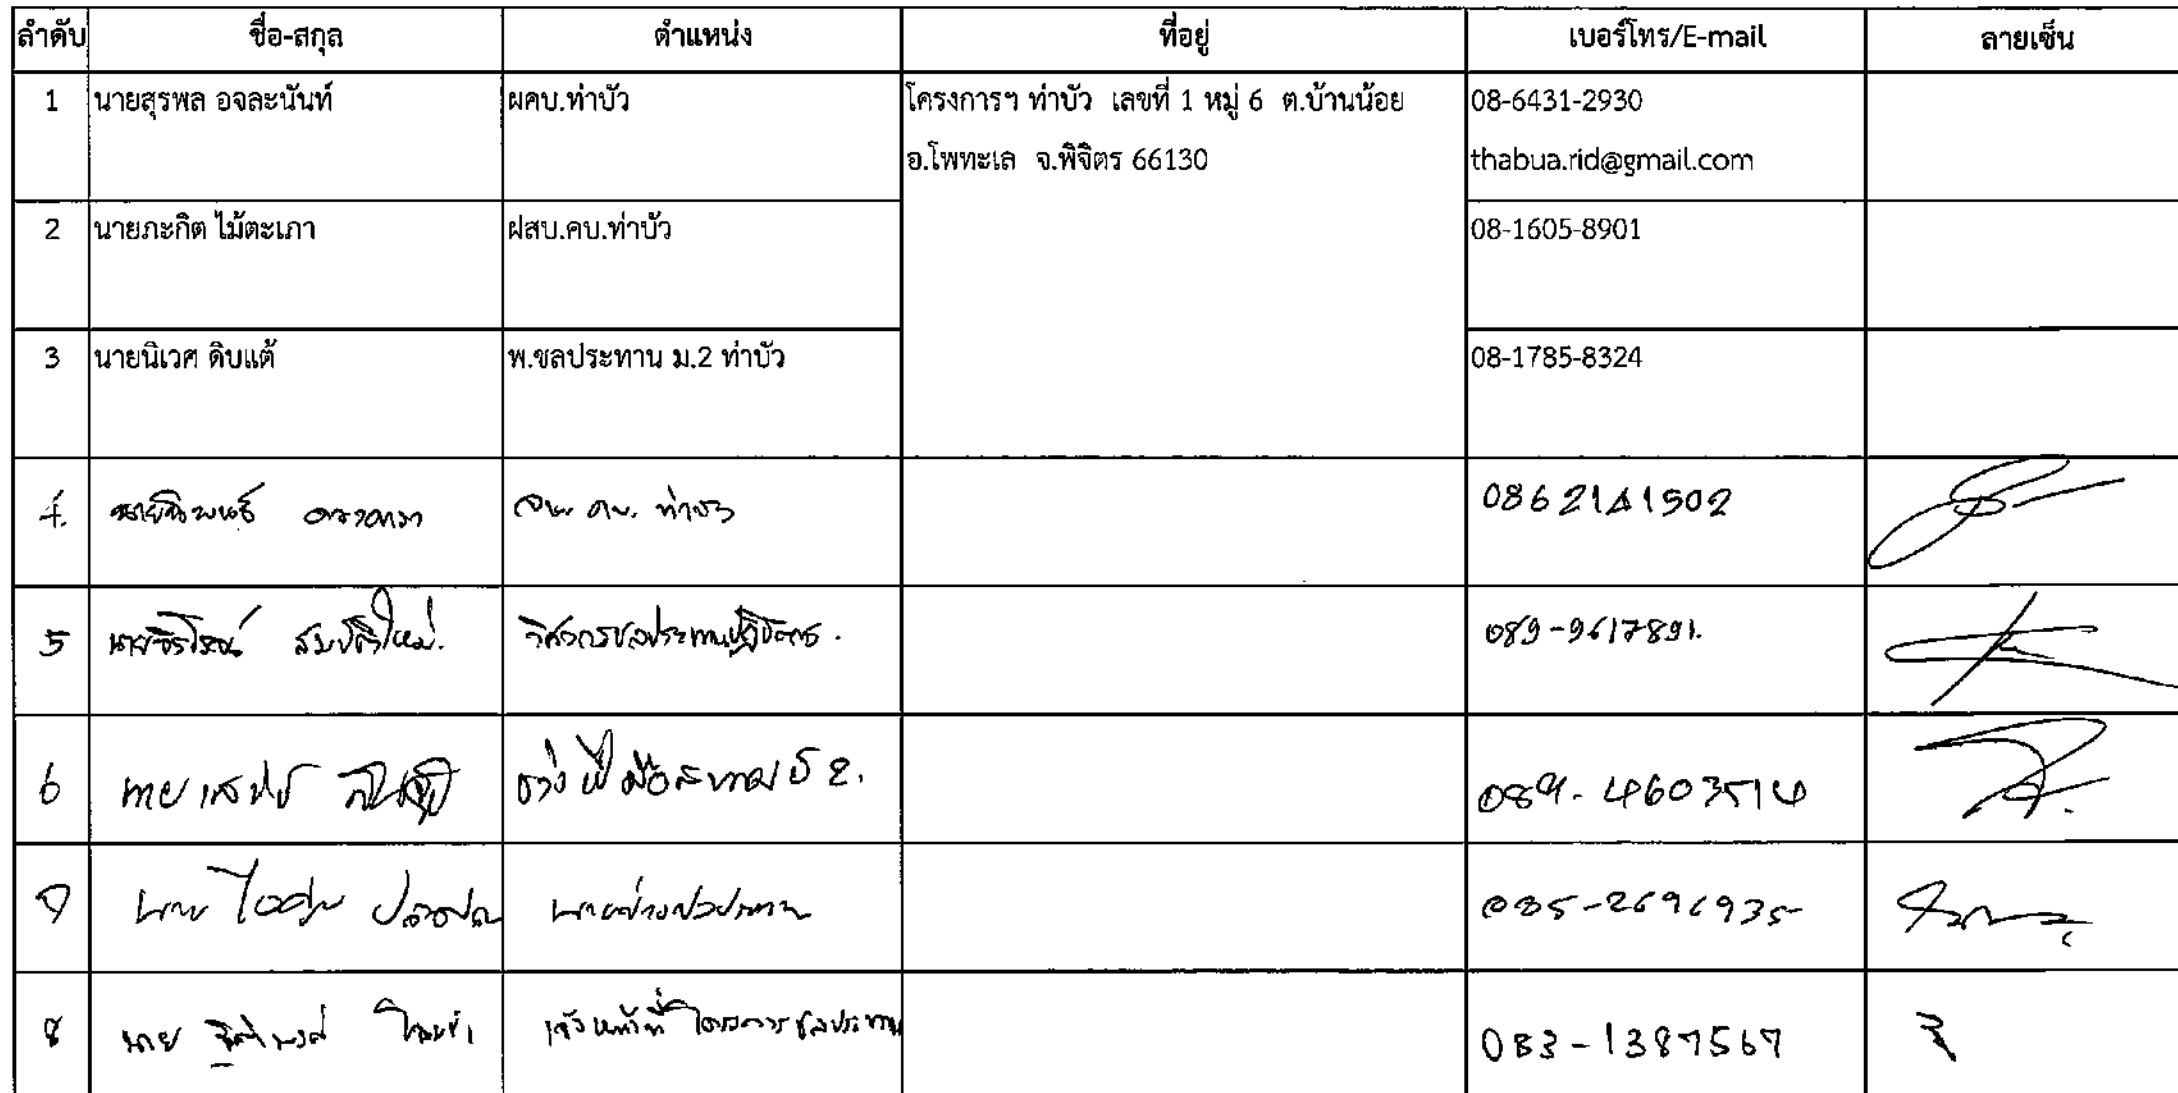 ลำดับ ชื่อ-สกุล ตำแหน่ง ที่อยู่ เบอร์โทร/E-mail ลายเซ็น
1 นายสุรพล อจละนันท์ ผคบ.ท่าบัว โครงการฯ ท่าบัว เลขที่ 1 หมู่ 6 ต.บ้านน้อย 08-6431-2930
อ.โพทะเล จ.พิจิตร 66130 thabua.rid@gmail.com
2 นายภะกิต ไม้ตะเภา ฝสบ.คบ.ท่าบัว 08-1605-8901
3 นายนิเวศ ดิบแต้ พ.ชลประทาน ม.2 ท่าบัว 08-1785-8324
4. คบ. ท่าบัว 0862141502
5 นาย สมบัติใหม่. วิศวกรชลประทานปฏิบัติการ. 089-9617891.
6 นาย ช่างฝีมือสนาม ช 2. 089-4603514
7 นาย นายช่างชลประทาน 085-2696935
8 นาย เจ้าหน้าที่โครงการชลประทาน 083-1387567